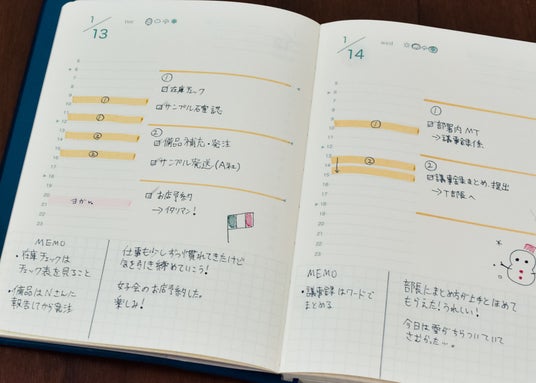 1/13 tue
①
☑ 在庫チェック
☑ サンプル在庫確認
②
☑ 備品補充・発注
☑ サンプル発送(A社)
☑ お店予約
→ イタリアン!
① 
①
②
②
ヨガ
MEMO
・在庫チェックは
チェック表を見ること
・備品はNさんに
報告してから発注
仕事も少しずつ慣れてきたけど
気を引き締めていこう!
女子会のお店予約した。
楽しみ!
1/14 wed
①
☑ 部署内MT
→ 議事録係
②
☑ 議事録まとめ、提出
→ T部長へ
①
②
MEMO
・議事録はワードで
まとめる
部長にまとめ方が上手とほめて
もらえた!うれしい!
今日は雪がちらついていて
さむかった〜。